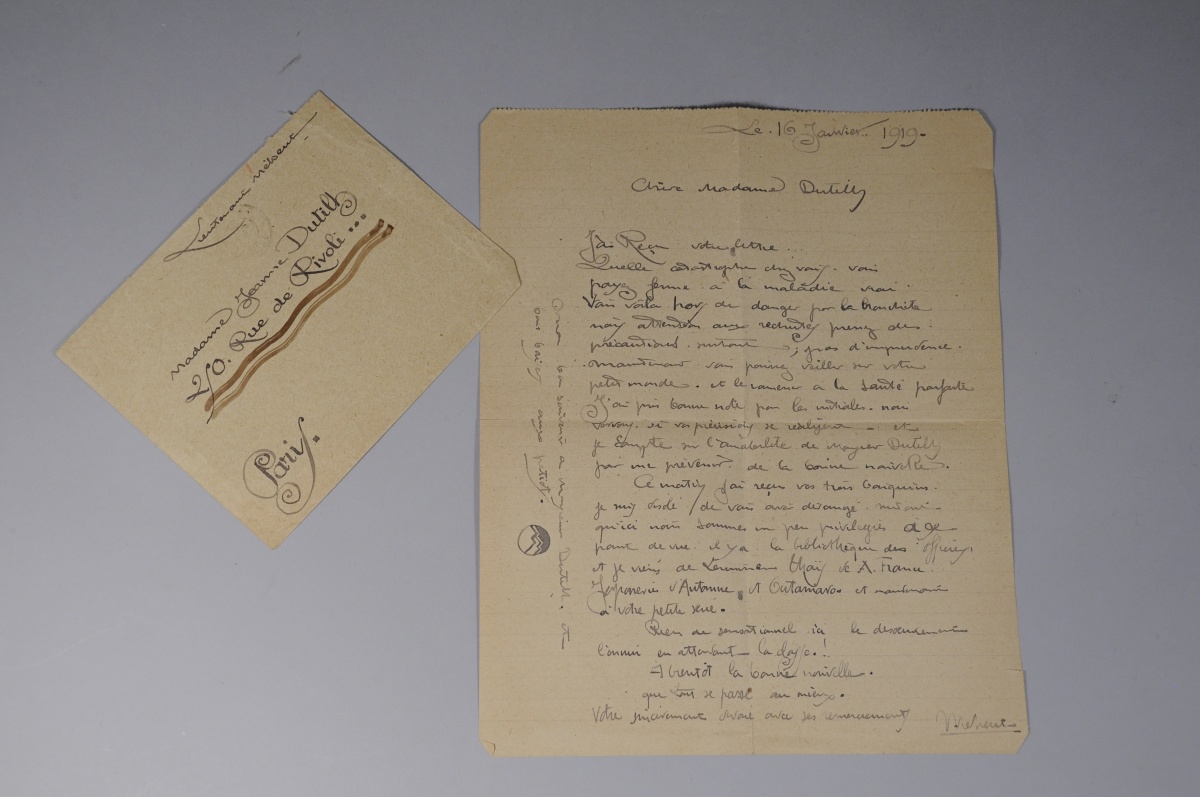 Lieutenant
Madame Jeanne Dutilh
210. Rue de Rivoli...
Paris.
Le. 16 Janvier. 1919.
Chère Madame Dutilh
J'ai Reçu votre lettre...
Quelle catastrophe chez vous. vous
payez ferme à la maladie vrai
Vous voilà hors de danger pour la bronchite
mais attention aux rechutes prenez des
précautions. surtout pas d'imprudence.
maintenant vous pouvez veiller sur votre
petit monde. et le ramener à la Santé parfaite
J'ai pris bonne note pour les initiales. nous
verrons si vos prévisions se réalisent et
je Compte sur l'amabilité de Monsieur Dutilh
pour me prévenir de la bonne nouvelle.
Ce matin j'ai reçu vos trois bouquins.
je suis désolé de vous avoir dérangé.
qu'ici nous Sommes un peu privilégiés à ce
point de vue. il y a la bibliothèque des officiers
et je viens de terminer Thaïs de A. France..
Japoneries d'Automne, et Outamaro. et maintenant
à votre petite série.
Rien de sensationnel ici le désœuvrement
l'ennui en attendant la classe.!
A bientôt la bonne nouvelle.
que tout se passe au mieux.
Votre sincèrement dévoué avec ses remerciements
mon bon souvenir à monsieur Dutilh. et
bons baisers aux petiots.